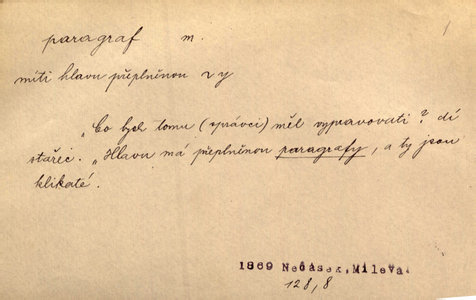 paragraf m. 1
míti hlavu přeplněnou ~y
„Co bych tomu (správci) měl vypravovati? dí
stařec. „Hlavu má přeplněnou paragrafy, a ty jsou
klikaté.
1869 Nečásek, Mileva.
128, 8